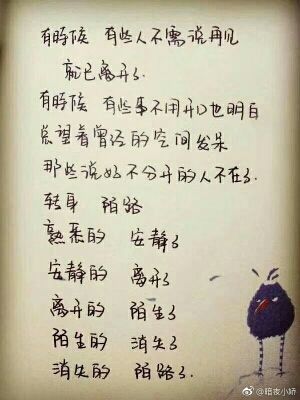 有時候 有些人不需说再见
就已离开了.
有时候 有些事不用开口也明白
总望着曾经的空间发呆
那些说好不分开的人不在了.
转身 陌路
熟悉的 安静了
安静的 离开了
离开的 陌生了
陌生的 消失了
消失的 陌路了.
@暗夜小娇